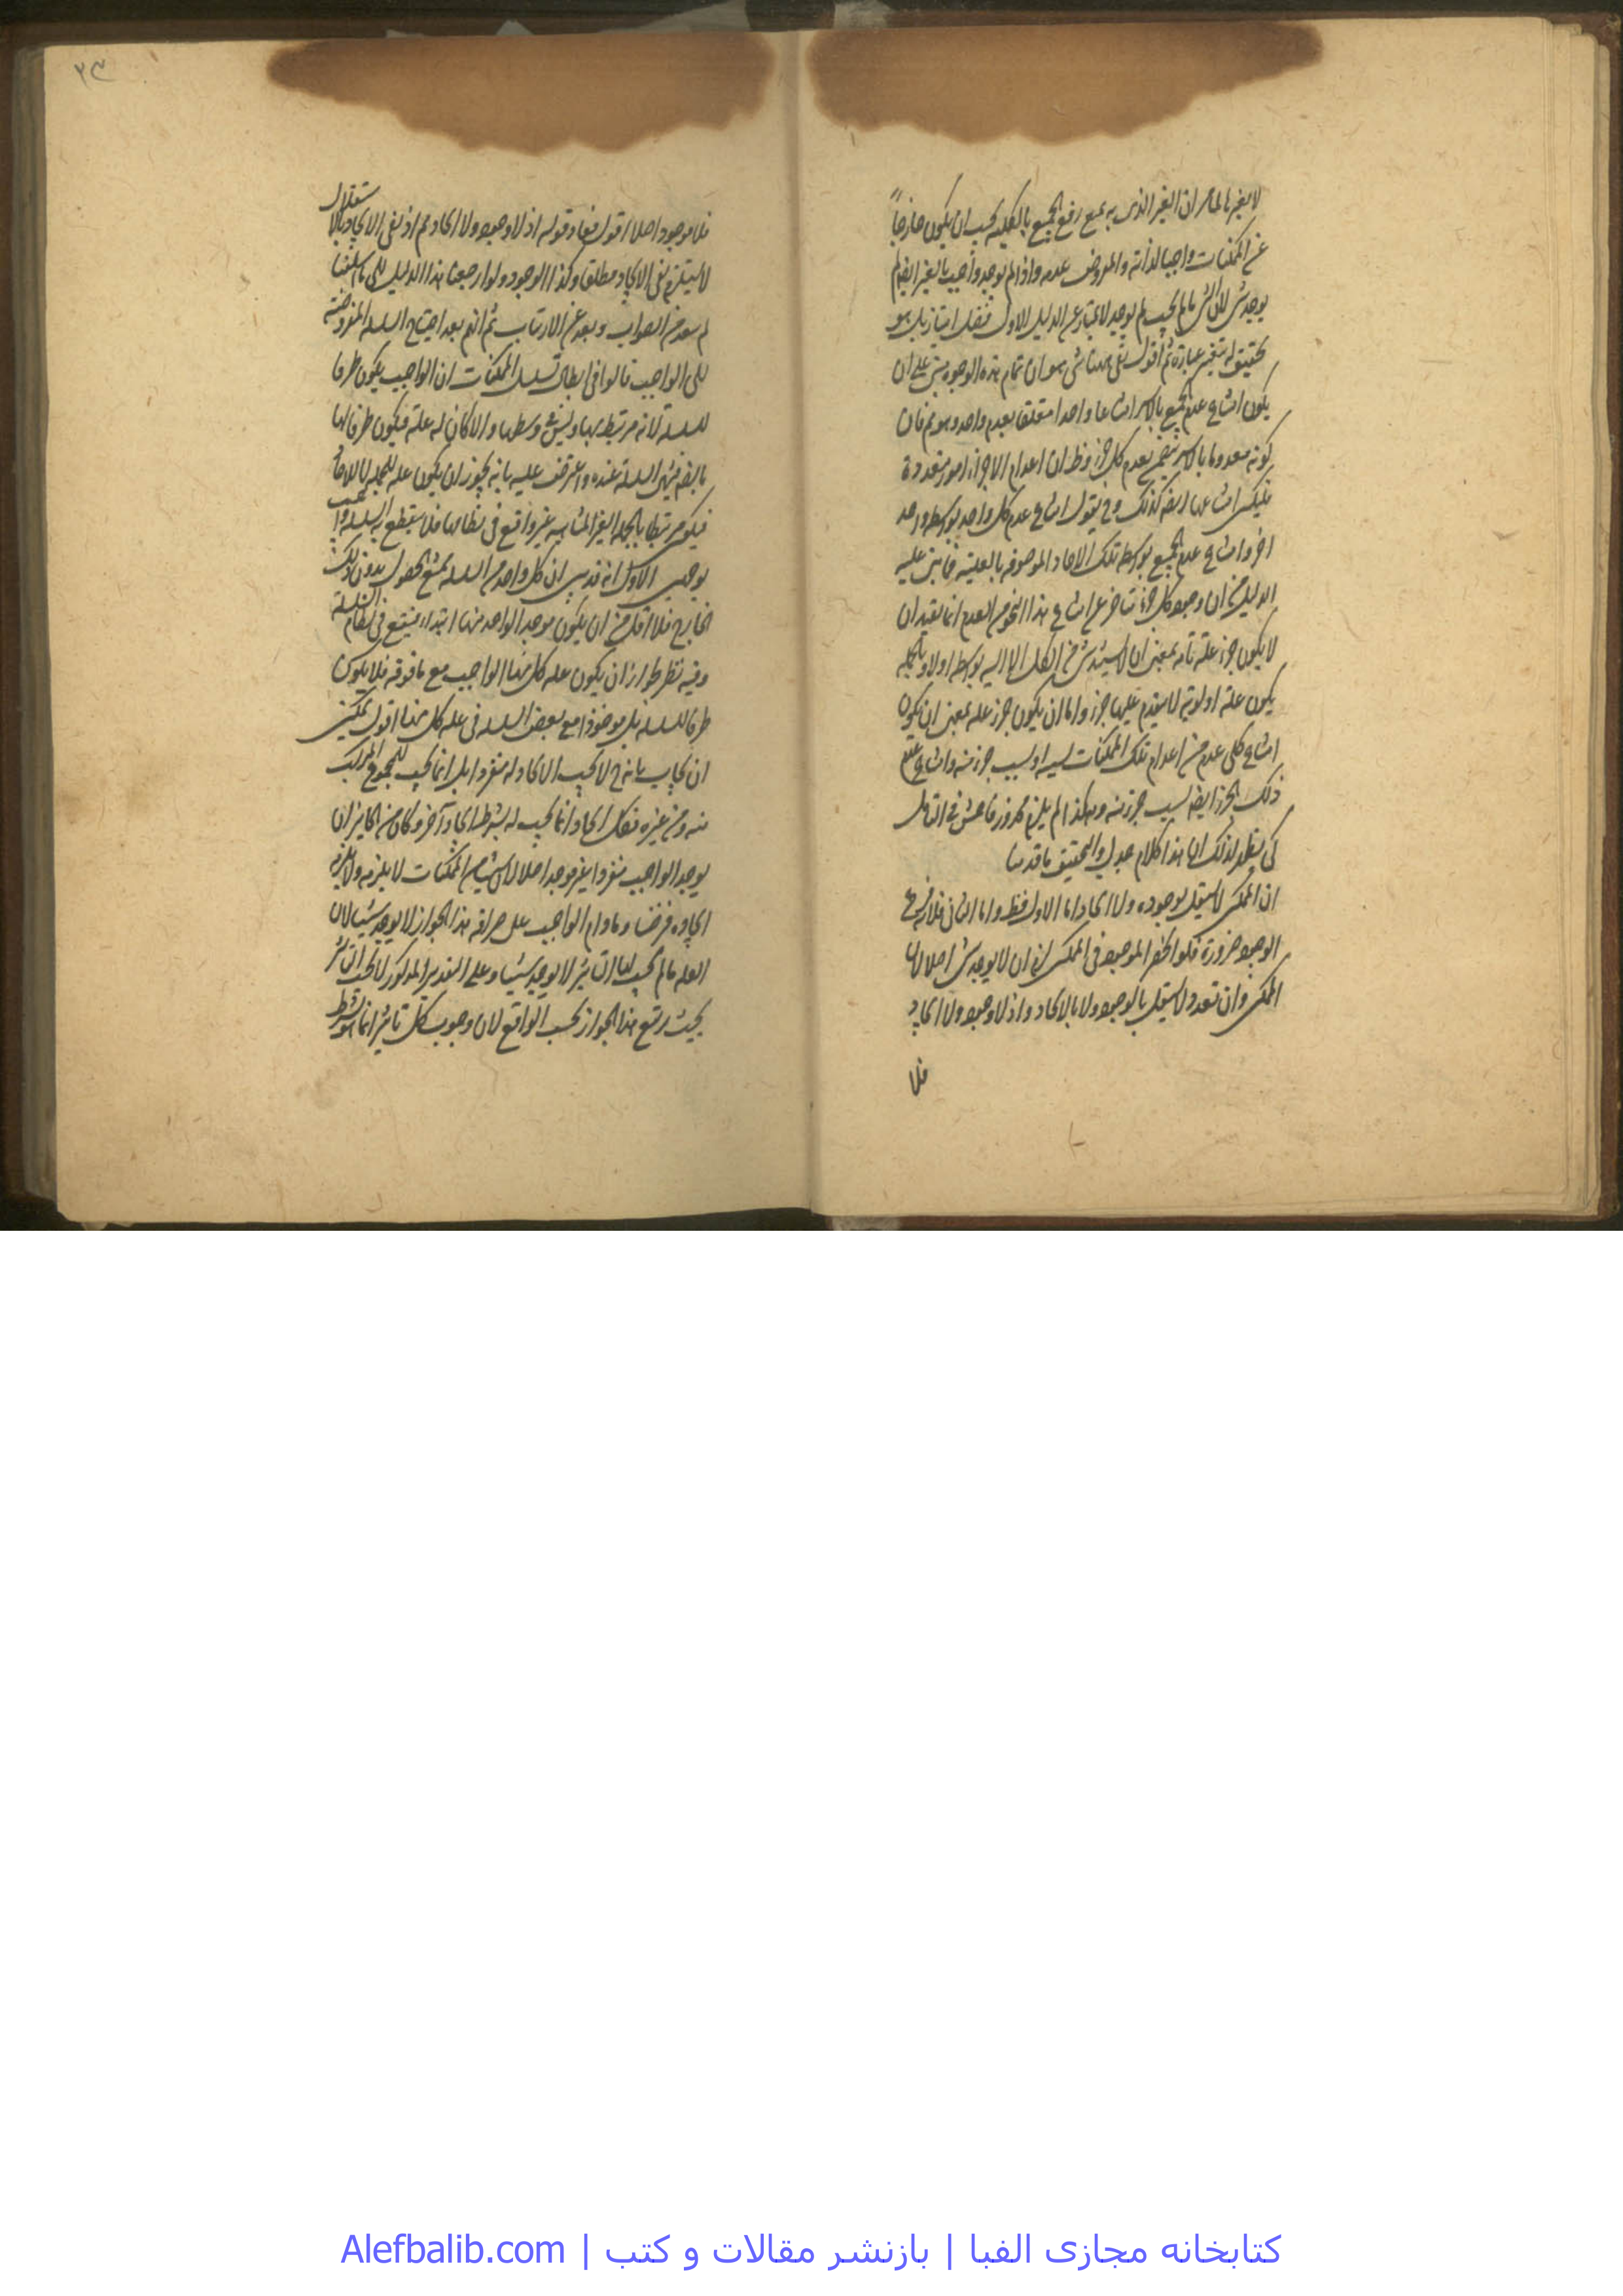 لا بغيرها لما مر ان الغير الذى به يمتنع رفع الجميع بالكليه يجب ان يكون خارجاً
عن الممكنات واجبا لذاته والمفروض عدمه واذا لم يوجد واجب بالغير ايضا لم
يوجد شى لان الشى ما لم يجب لم يوجد لا يمتاز عن الدليل الاول فضل امتياز بل هو
ثم اقول بقى ههنا شى هو ان تمام هذه الوجوه مبنى على ان
يكون امتناع عدم الجميع بالاسر امتناعا واحدا متعلقا بعدم واحد وهو مم فان
كونه معدوما بالاسر بعدم كل جزء وظ ان اعدام الاجزاء امور متعددة
فليكن امتناعها ايضا كذلك وح يقول امتناع عدم كل واحد بواسطه واحد
اخر وامتناع عدم الجميع بواسطه تلك الاحاد الموصوفه بالعليه فما بنى عليه
الدليل من ان وجود كل جزء متاخر عن امتناع هذا النحو من العدم انما يفيد ان
لا يكون جزء علة تامه بمعنى ان لا يستند شى من الكل الا اليه بواسطه اولا وبالجمله
يكون علته اولويه لا يتقدم عليها جزء واما ان يكون جزء علة بمعنى ان يكون
امتناع كل عدم من اعدام تلك الممكنات بسبب جزء منه وامتناع عدم
ذلك الجزء ايضا بسبب جزء منه وهكذا لم يلزم محذور فامعن فى التامل
كى يظهر لك ان هذا كلام جدلى والتحقيق ما قدمنا
ان الممكن لا يستقل بوجوده ولا ايجاد اما الاول فظ واما الثانى فلانه فرع
الوجود ضرورة فلو انحصر الموجود فى الممكن لزم ان لا يوجد شى اصلا لان
الممكن وان تعدد لا يستقل بالوجود ولا بالايجاد واذ لا وجود ولا ايجاد
فلا
٢٣
فلا موجود اصلا اقول فقوله اذ لا وجود ولا ايجاد مم اذ نفى الايجاد بالاستقلال
لا يستلزم نفى الايجاد مطلقا وكذا الوجود ولو ارجعنا هذا الدليل الى ما اسلفنا
لم يبعد من الصواب وبعد عن الارتياب ثم انهم بعد احتياج السلسله المفروضه
الى الواجب قالوا فى ابطال تسلسل الممكنات ان الواجب يكون طرفا
للسلسلة لانه مرتبط بها وليس فى وسطها والا كان له علة فيكون طرفا لها
بالضروره فينتهى السلسلة عنده واعترض عليه بانه يجوز ان يكون علة للجمله لا للاحاد
فيكون مرتبطا بالجمله الغير المتناهيه غير واقع فى نظامها فلا ينقطع به السلسله واجيب
بوجهين الاول انه قد بين ان كل واحد من السلسله يمتنع الحصول بدون ذلك
الخارج فلا اقل من ان يكون موجد الواحد منها ابتداء فيقع فى نظام السلسلة
وفيه نظر لجواز ان يكون علة كل منها الواجب مع ما فوقه فلا يكون
طرفا للسلسله بل موخوذا مع بعض السلسله فى علة كل منها اقول يمكن
ان يجاب بانه ح لا يجب الايجاد له منفردا بل انما يجب للمجموع المركب
منه ومن غيره فكل ايجاد انما يجب له بشرط ايجاد آخر وكان من الجايز ان
يوجد الواجب منفردا غير موجد اصلا لان شيئا من الممكنات لا يلزمه ولا يلزم
ايجاده فرضا وما دام الواجب على صرافه هذا الجواز لا يوجد شيئا لان
العله ما لم يجب لها التاثير لا يوجد شيئا وعلى التقدير المذكور لا يجب التاثير
بحيث يرتفع هذا الجواز بحسب الواقع لان وجوب كل تاثير انما هو بشرط
کتابخانه مجازی الفبا | بازنشر مقالات و کتب | Alefbalib.com